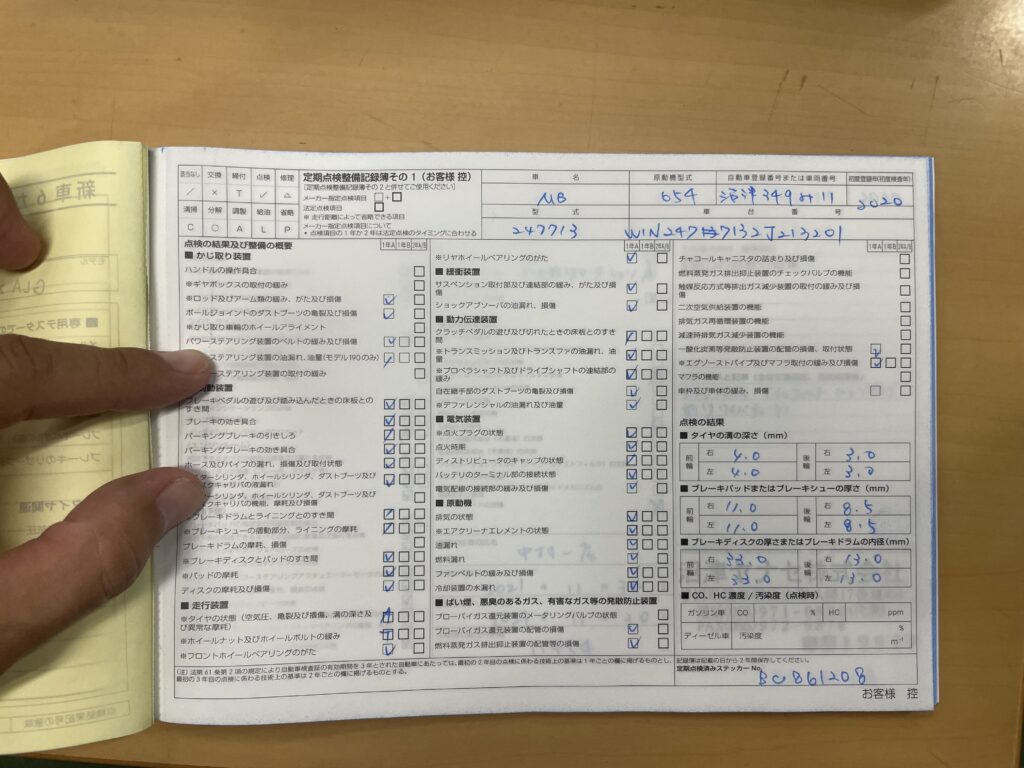 定期点検整備記録簿その1（お客様 控）
[定期点検整備記録簿その2と併せてご使用ください]
該当なし 交換 締付 点検 修理
／ × T ✓ △
清掃 分解 調整 給油 省略
C ○ A L P
メーカー指定点検項目 □+□
法定点検項目 □
※ 走行距離によって省略できる項目
メーカー指定点検項目について
• 点検項目の1年か2年は法定点検のタイミングに合わせる
車名 原動機型式 自動車登録番号または車両番号 初度登録年(初度検査年)
MB 654 2020
型式 車台番号
247713
点検の結果及び整備の概要
1年A 1年B 2年A/B
■ かじ取り装置
ハンドルの操作具合
※ギヤボックスの取付の緩み
※ロッド及びアーム類の緩み、がた及び損傷
ボールジョイントのダストブーツの亀裂及び損傷
※かじ取り車輪のホイールアライメント
パワーステアリング装置のベルトの緩み及び損傷
ステアリング装置の油漏れ、油量(モデル190のみ)
ステアリング装置の取付の緩み
動装置
ブレーキペダルの遊び及び踏み込んだときの床板とのすき間
ブレーキの効き具合
パーキングブレーキの引きしろ
パーキングブレーキの効き具合
ホース及びパイプの漏れ、損傷及び取付状態
ターシリンダ、ホイールシリンダ、ダストブーツ及び
スクキャリパの液漏れ
ターシリンダ、ホイールシリンダ、ダストブーツ及び
スクキャリパの機能、摩耗及び損傷
※ブレーキドラムとライニングとのすき間
※ブレーキシューの摺動部分、ライニングの摩耗
ブレーキドラムの摩耗、損傷
※ブレーキディスクとパッドのすき間
※パッドの摩耗
ディスクの摩耗及び損傷
■ 走行装置
※タイヤの状態（空気圧、亀裂及び損傷、溝の深さ及び異常な摩耗）
※ホイールナット及びホイールボルトの緩み
※フロントホイールベアリングのがた
1年A 1年B 2年A/B
※リヤホイールベアリングのがた
■ 緩衝装置
サスペンション取付部及び連結部の緩み、がた及び損傷
ショックアブソーバの油漏れ、損傷
■ 動力伝達装置
クラッチペダルの遊び及び切れたときの床板とのすき間
※トランスミッション及びトランスファの油漏れ、油量
※プロペラシャフト及びドライブシャフトの連結部の緩み
自在継手部のダストブーツの亀裂及び損傷
※デファレンシャルの油漏れ及び油量
■ 電気装置
※点火プラグの状態
点火時期
ディストリビュータのキャップの状態
バッテリのターミナル部の接続状態
電気配線の接続部の緩み及び損傷
■ 原動機
排気の状態
※エアクリーナエレメントの状態
油漏れ
燃料漏れ
ファンベルトの緩み及び損傷
冷却装置の水漏れ
■ ばい煙、悪臭のあるガス、有害なガス等の発散防止装置
ブローバイガス還元装置のメータリングバルブの状態
ブローバイガス還元装置の配管の損傷
燃料蒸発ガス排出抑止装置の配管等の損傷
1年A 1年B 2年A/B
チャコールキャニスタの詰まり及び損傷
燃料蒸発ガス排出抑止装置のチェックバルブの機能
触媒反応方式等排出ガス減少装置の取付の緩み及び損傷
二次空気供給装置の機能
排気ガス再循環装置の機能
減速時排気ガス減少装置の機能
一酸化炭素等発散防止装置の配管の損傷、取付状態
※エグゾーストパイプ及びマフラ取付の緩み及び損傷
マフラの機能
車枠及び車体の緩み、損傷
点検の結果
■ タイヤの溝の深さ（mm）
前輪 右 4.0 後輪 右 3.0
左 4.0 左 3.0
■ ブレーキパッドまたはブレーキシューの厚さ（mm）
前輪 右 11.0 後輪 右 8.5
左 11.0 左 8.5
■ ブレーキディスクの厚さまたはブレーキドラムの内径(mm)
前輪 右 33.0 後輪 右 13.0
左 33.0 左 13.0
■ CO、HC 濃度 / 汚染度（点検時）
ガソリン車 CO % HC ppm
ディーゼル車 汚染度 % m⁻¹
(注) 法第61条第2項の規定により自動車検査証の有効期間を3年とされた自動車にあたっては、最初の2年目の点検に係わる技術上の基準は1年ごとの欄に掲げるものとし、
最初の3年目の点検に係わる技術上の基準は2年ごとの欄に掲げるものとする。
記録簿は記載の日から2年間保存してください。
定期点検済みステッカー No.
BC861208
お客様 控